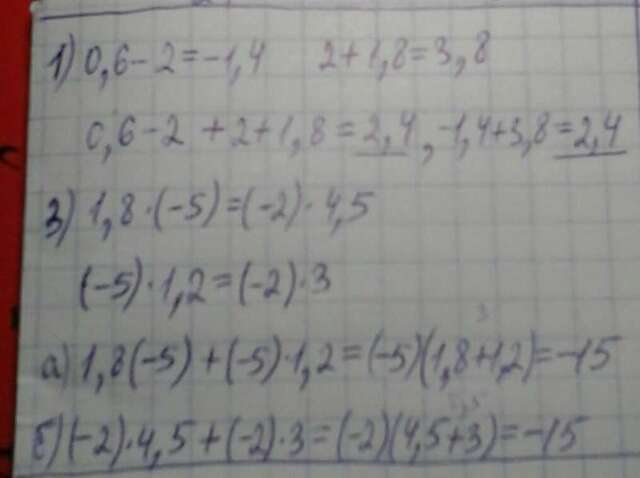 1) 0,6-2=-1,4 2+1,8=3,8
0,6-2+2+1,8=2,4, -1,4+3,8=2,4
3) 1,8·(-5)=(-2)·4,5
(-5)·1,2=(-2)·3
3
а) 1,8(-5)+(-5)·1,2=(-5)(1,8+1,2)=-15
б) (-2)·4,5+(-2)·3=(-2)(4,5+3)=-15